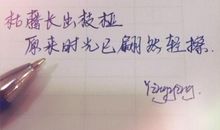 枯藤长出枝桠
原来时光已翩然轻擦
Yingfeng